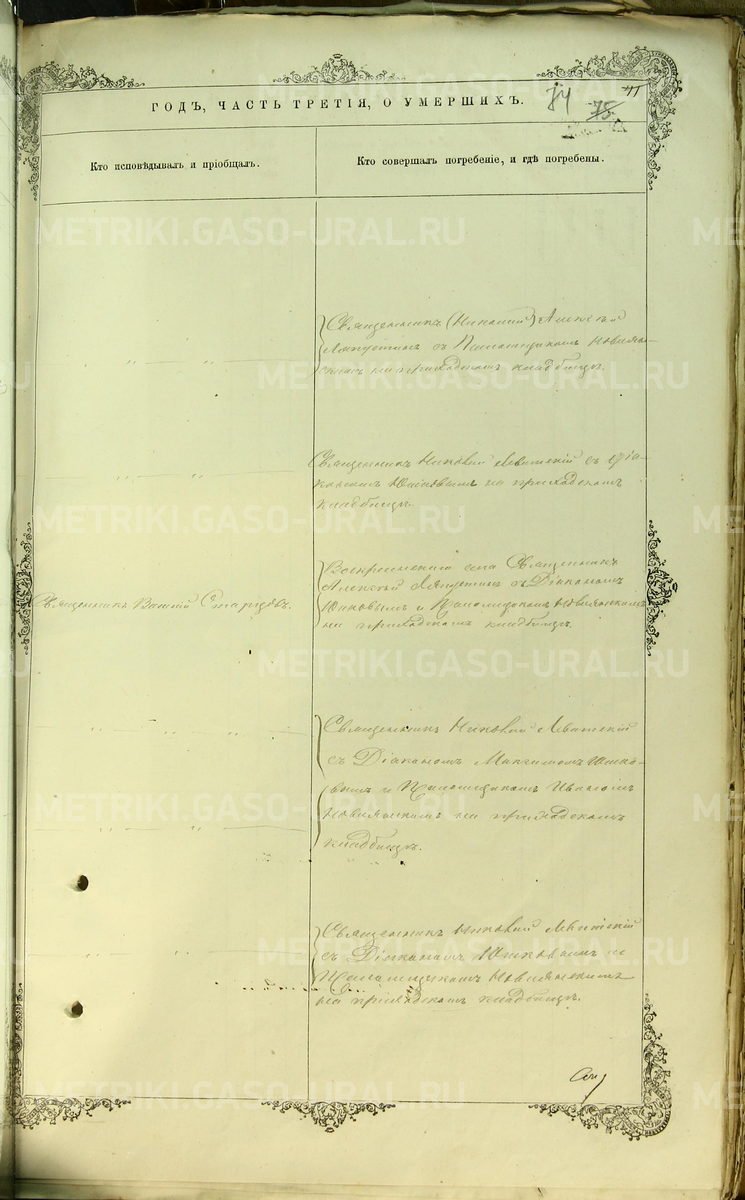 ГОДЪ, ЧАСТЬ ТРЕТІЯ, О УМЕРШИХЪ.
84
75
Кто исповѣдывалъ и пріобщалъ.
Кто совершалъ погребеніе, и гдѣ погребены.
Священникъ (Николай) Алексѣй
съ Псаломщикомъ Новиян-
скимъ на приходскомъ кладбищѣ.
Священникъ Николай Левитскій съ діа-
кономъ Юшковымъ на приходскомъ
кладбищѣ.
Священникъ Василій Старцевъ.
Воскресенскаго села Священникъ
Алексѣй съ Діакономъ
Юшковымъ и Псаломщикомъ Новиянскимъ
на приходскомъ кладбищѣ.
Священникъ Николай Левитскій
съ Діакономъ Максимомъ Юшко-
вымъ и Псаломщикомъ Иваномъ
Новиянскимъ на приходскомъ
кладбищѣ.
Священникъ Николай Левитскій
съ Діакономъ Юшковымъ и
Псаломщикомъ Новиянскимъ
на приходскомъ кладбищѣ.
METRIKI.GASO-URAL.RU